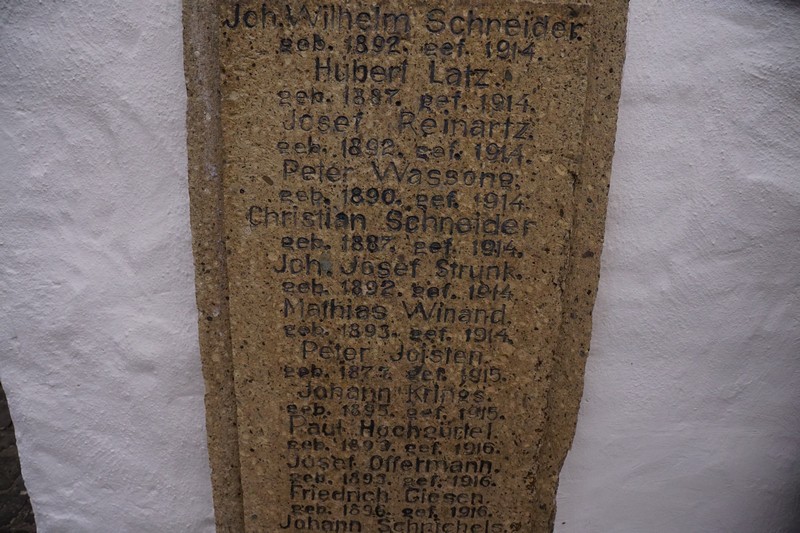 Joh. Wilhelm Schneider.
geb. 1892. gef. 1914.
Hubert Latz.
geb. 1887. gef. 1914.
Josef Reinartz.
geb. 1892. gef. 1914.
Peter Wassong.
geb. 1890. gef. 1914.
Christian Schneider
geb. 1887. gef. 1914.
Joh. Josef Strunk.
geb. 1892. gef. 1914.
Mathias Winand.
geb. 1893. gef. 1914.
Peter Joisten.
geb. gef. 1915.
Johann Krings.
geb. 1895. gef. 1915.
Paul Hochgürtel.
geb. 1893. gef. 1916.
Josef Offermann.
geb. 1893. gef. 1916.
Friedrich Giesen.
geb. 1896. gef. 1916.
Johann